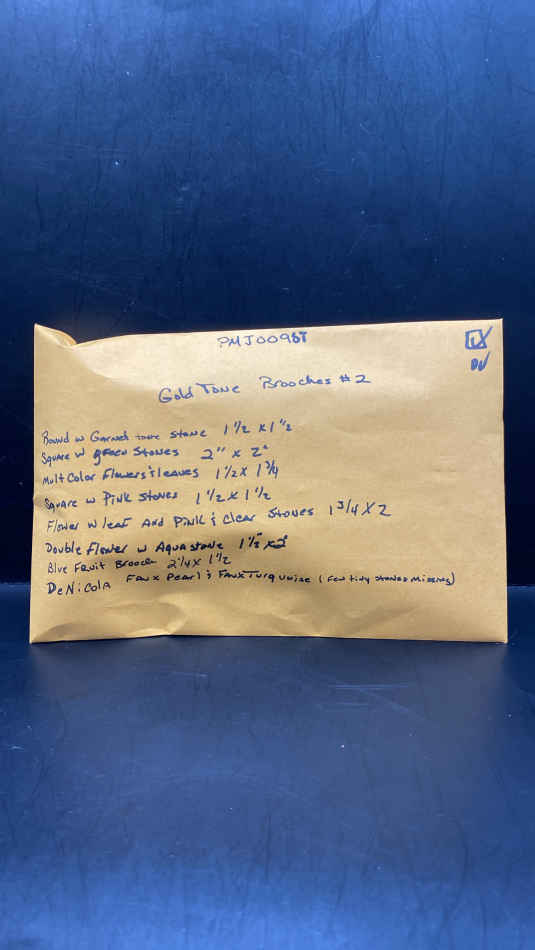 PMJ0098T
Gold Tone Brooches #2
Round w Garnet tone stone 1 1/2 x 1 1/2
Square w green stones 2" x 2"
Mult Color Flowers & leaves 1 1/2 x 1 3/4
Square w Pink Stones 1 1/2 x 1 1/2
Flower w leaf And Pink & Clear Stones 1 3/4 X 2
Double Flower w Aqua stone 1 1/2" x 2"
Blue Fruit Brooch 2 1/4 x 1 1/2
DeNicola Faux Pearl & Faux Turquoise (few tiny stones missing)